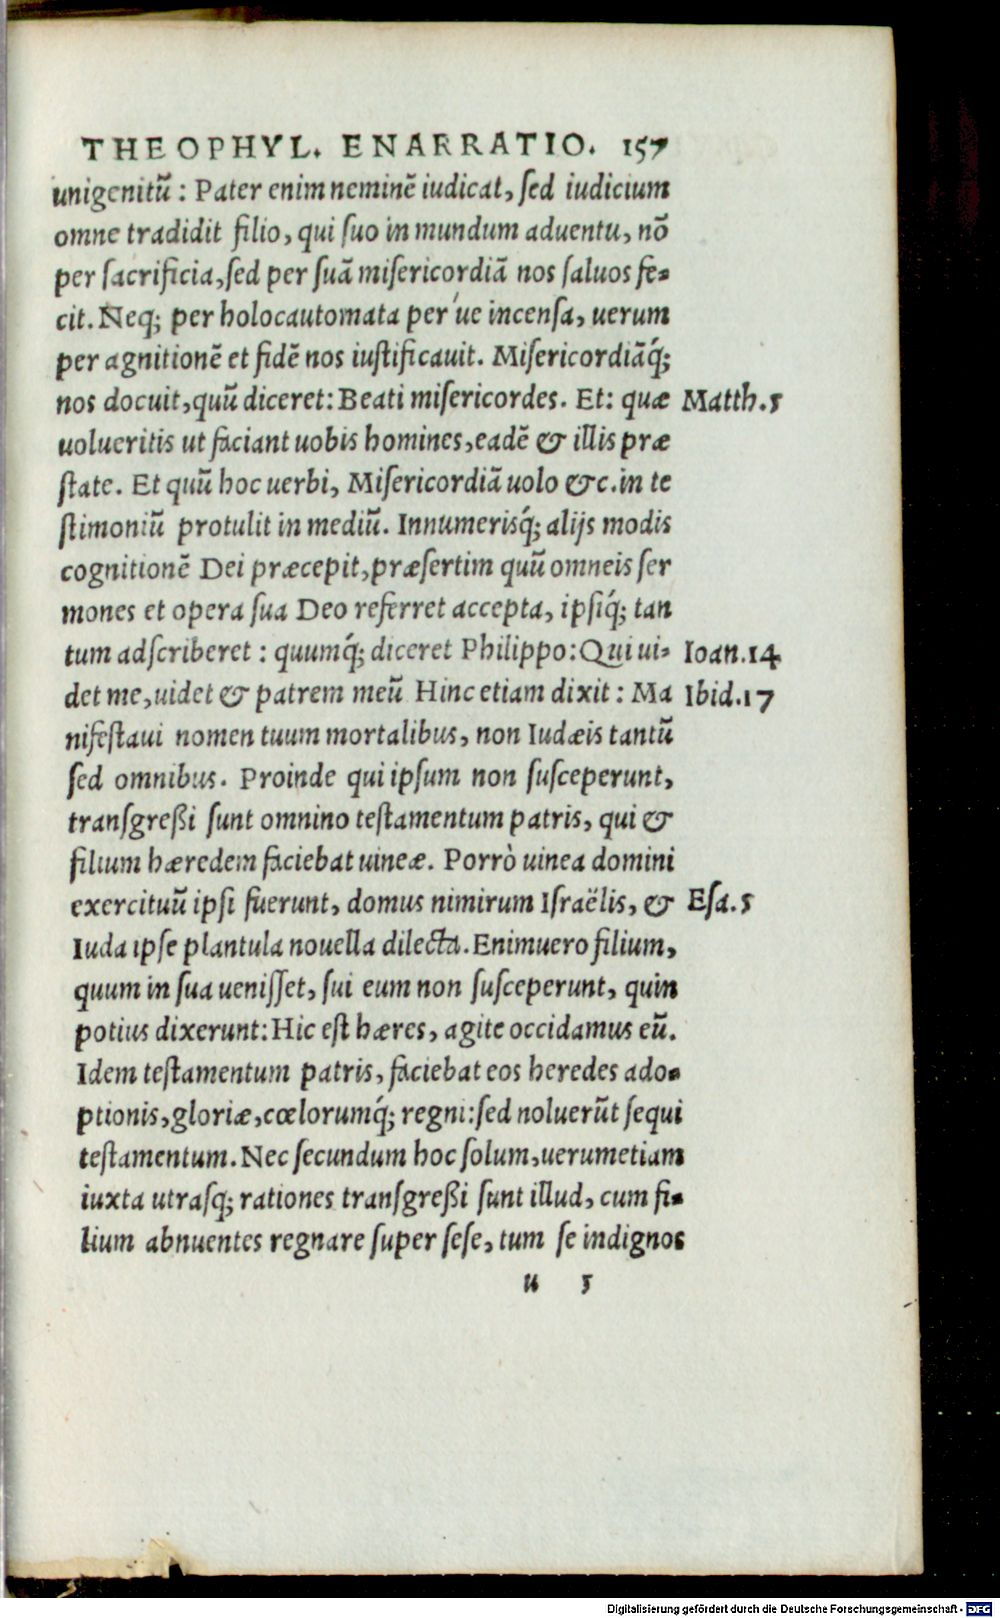 THEOPHYL. ENARRATIO. 157
unigenitũ : Pater enim neminẽ iudicat, ſed iudicium
omne tradidit filio, qui ſuo in mundum aduentu, nõ
per ſacrificia, ſed per ſuã miſericordiã nos ſaluos fe-
cit. Neq; per holocautomata per´ue incenſa, uerum
per agnitionẽ et fidẽ nos iuſtificauit. Miſericordiãq́;
nos docuit, quũ diceret: Beati miſericordes. Et: quæ Matth.5
uolueritis ut faciant uobis homines, eadẽ & illis præ
ſtate. Et quũ hoc uerbi, Miſericordiã uolo &c. in te
ſtimoniũ protulit in mediũ. Innumerisq́; alijs modis
cognitionẽ Dei præcepit, præſertim quũ omneis ſer
mones et opera ſua Deo referret accepta, ipſiq́; tan
tum adſcriberet : quumq́; diceret Philippo: Qui ui- Ioan.14
det me, uidet & patrem meũ Hinc etiam dixit : Ma Ibid.17
nifeſtaui nomen tuum mortalibus, non Iudæis tantũ
ſed omnibus. Proinde qui ipſum non ſuſceperunt,
tranſgreßi ſunt omnino teſtamentum patris, qui &
filium hæredem faciebat uineæ. Porrò uinea domini
exercituũ ipſi fuerunt, domus nimirum Iſraëlis, & Eſa.5
Iuda ipſe plantula nouella dilecta. Enimuero filium,
quum in ſua ueniſſet, ſui eum non ſuſceperunt, quin
potius dixerunt: Hic eſt hæres, agite occidamus eũ.
Idem teſtamentum patris, faciebat eos heredes ado-
ptionis, gloriæ, cœlorumq́; regni: ſed noluerũt ſequi
teſtamentum. Nec ſecundum hoc ſolum, uerumetiam
iuxta utraſq; rationes tranſgreßi ſunt illud, cum fi-
lium abnuentes regnare ſuper ſeſe, tum ſe indignos
u 5
Digitalisierung gefördert durch die Deutsche Forschungsgemeinschaft - DFG